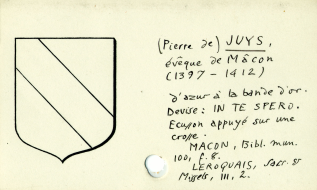 (Pierre de) JUYS,
évêque de Mâcon
(1397 - 1412)
d'azur à la bande d'or.
Devise: IN TE SPERO.
Ecusson appuyé sur une
crosse.
MACON, Bibl. mun.
100, f. 8.
LEROQUAIS, Sacr. et
Missels, III, 2.